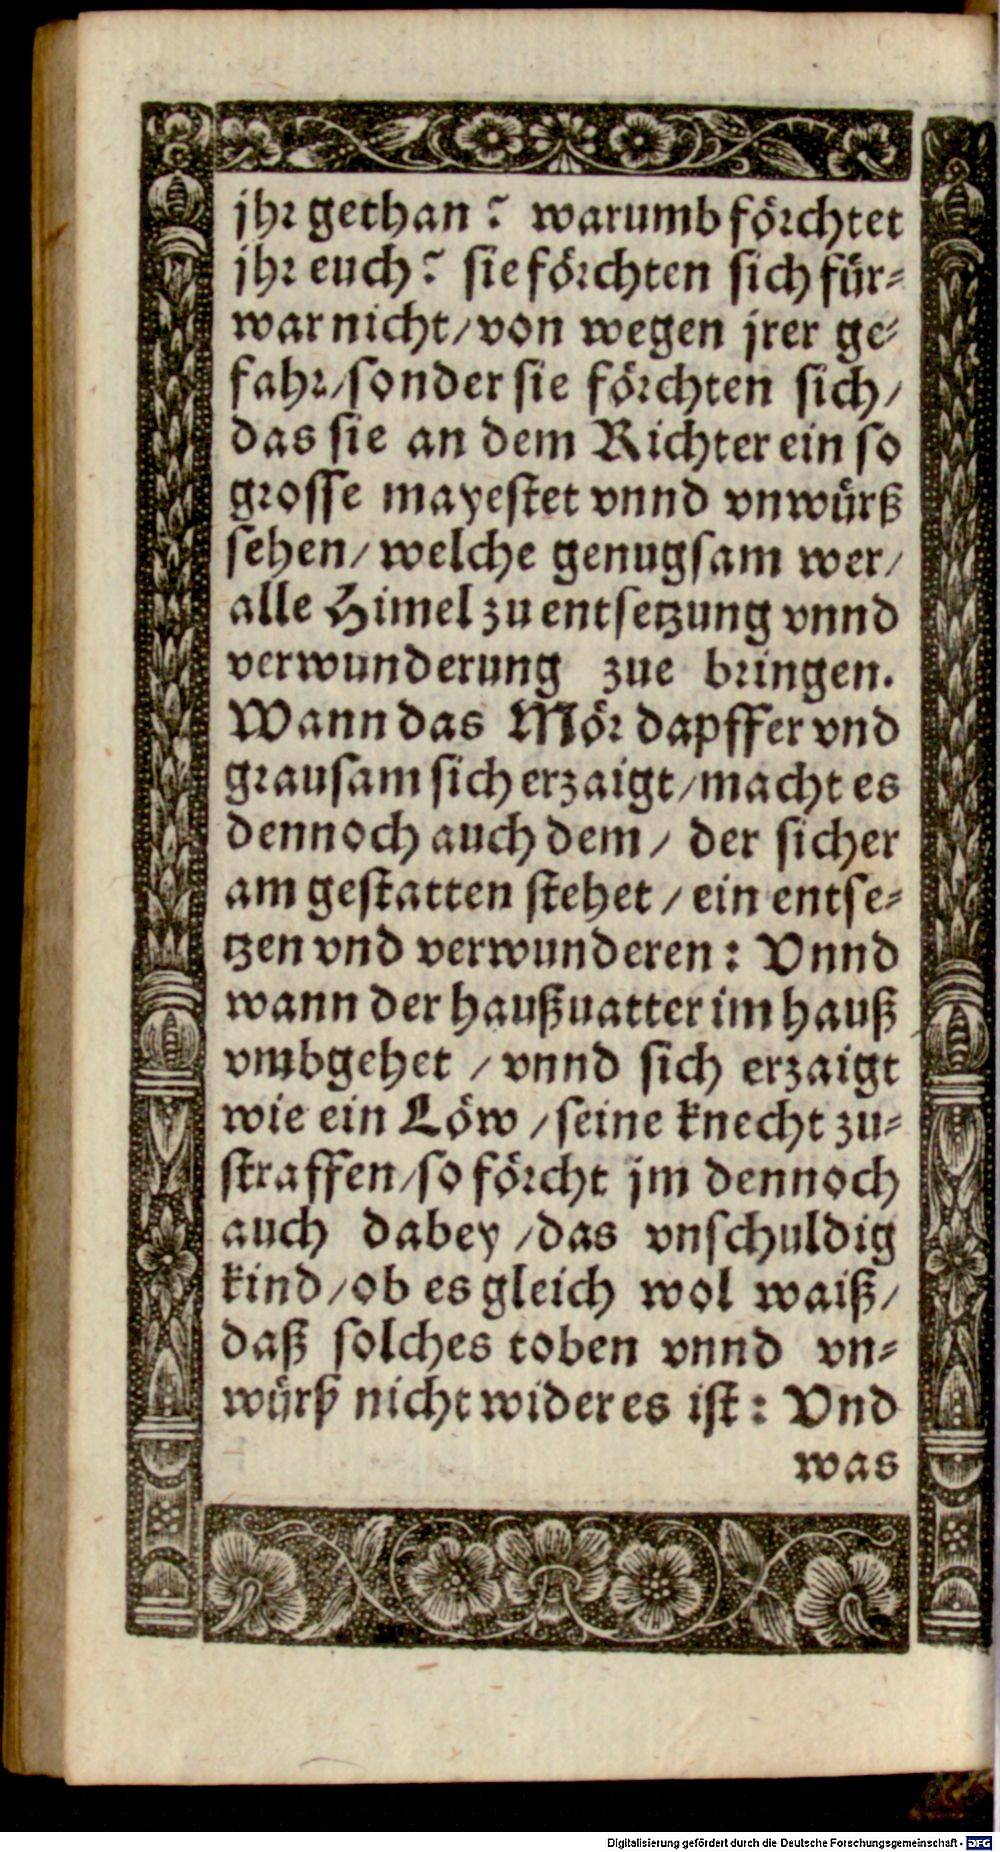 jhr gethan? warumb förchtet
jhr euch? sie förchten sich für-
war nicht/ von wegen jrer ge-
fahr/ sonder sie förchten sich/
das sie an dem Richter ein so
grosse mayestet vnnd vnwürß
sehen/ welche genugsam wer/
alle Himel zu entsetzung vnnd
verwunderung zue bringen.
Wann das Mör dapffer vnd
grausam sich erzaigt/ macht es
dennoch auch dem/ der sicher
am gestatten stehet/ ein entse-
tzen vnd verwunderen: Vnnd
wann der haußuatter im hauß
vmbgehet/ vnnd sich erzaigt
wie ein Löw/ seine knecht zu-
straffen/ so förcht jm dennoch
auch dabey/ das vnschuldig
kind/ ob es gleich wol waiß/
daß solches toben vnnd vn-
würß nicht wider es ist: Vnd
was
Digitalisierung gefördert durch die Deutsche Forschungsgemeinschaft - DFG